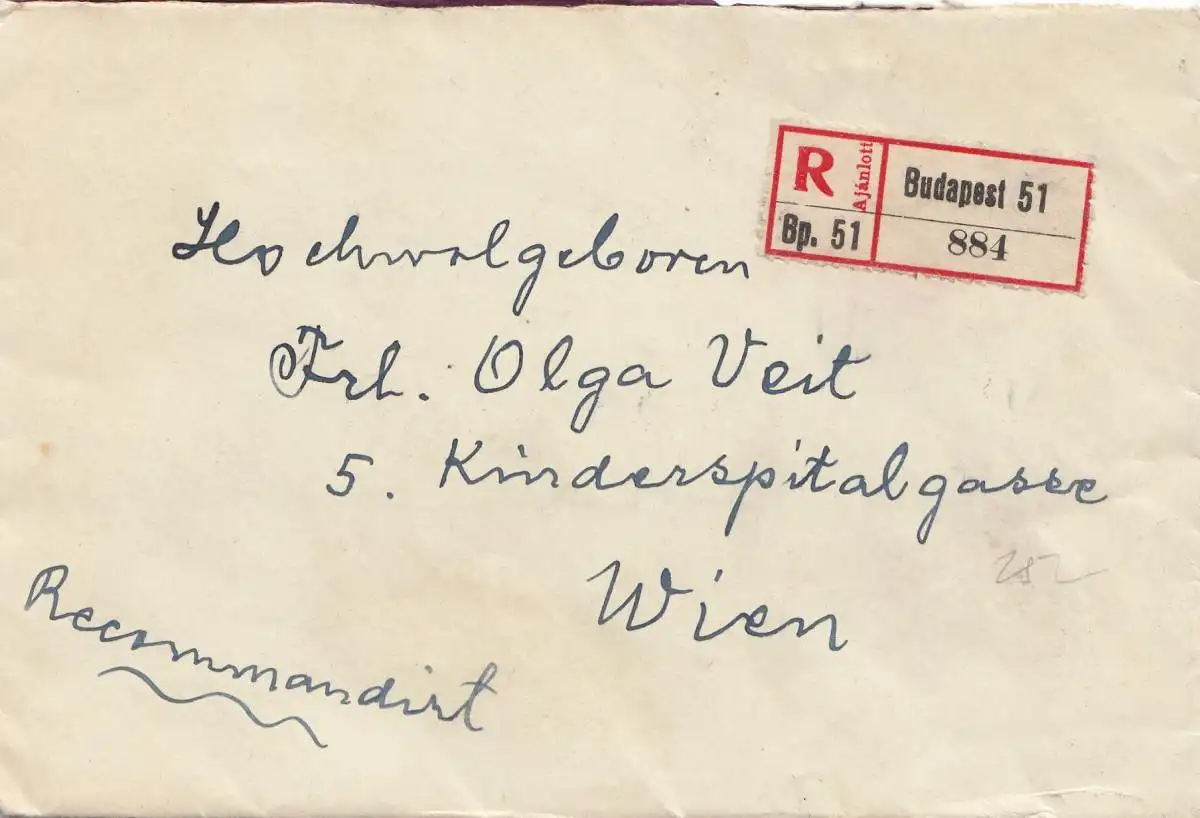 R Ajánlott Budapest 51
Bp. 51 884
Hochwolgeboren
Frl. Olga Veit
5. Kinderspitalgasse
Wien
Recommandirt